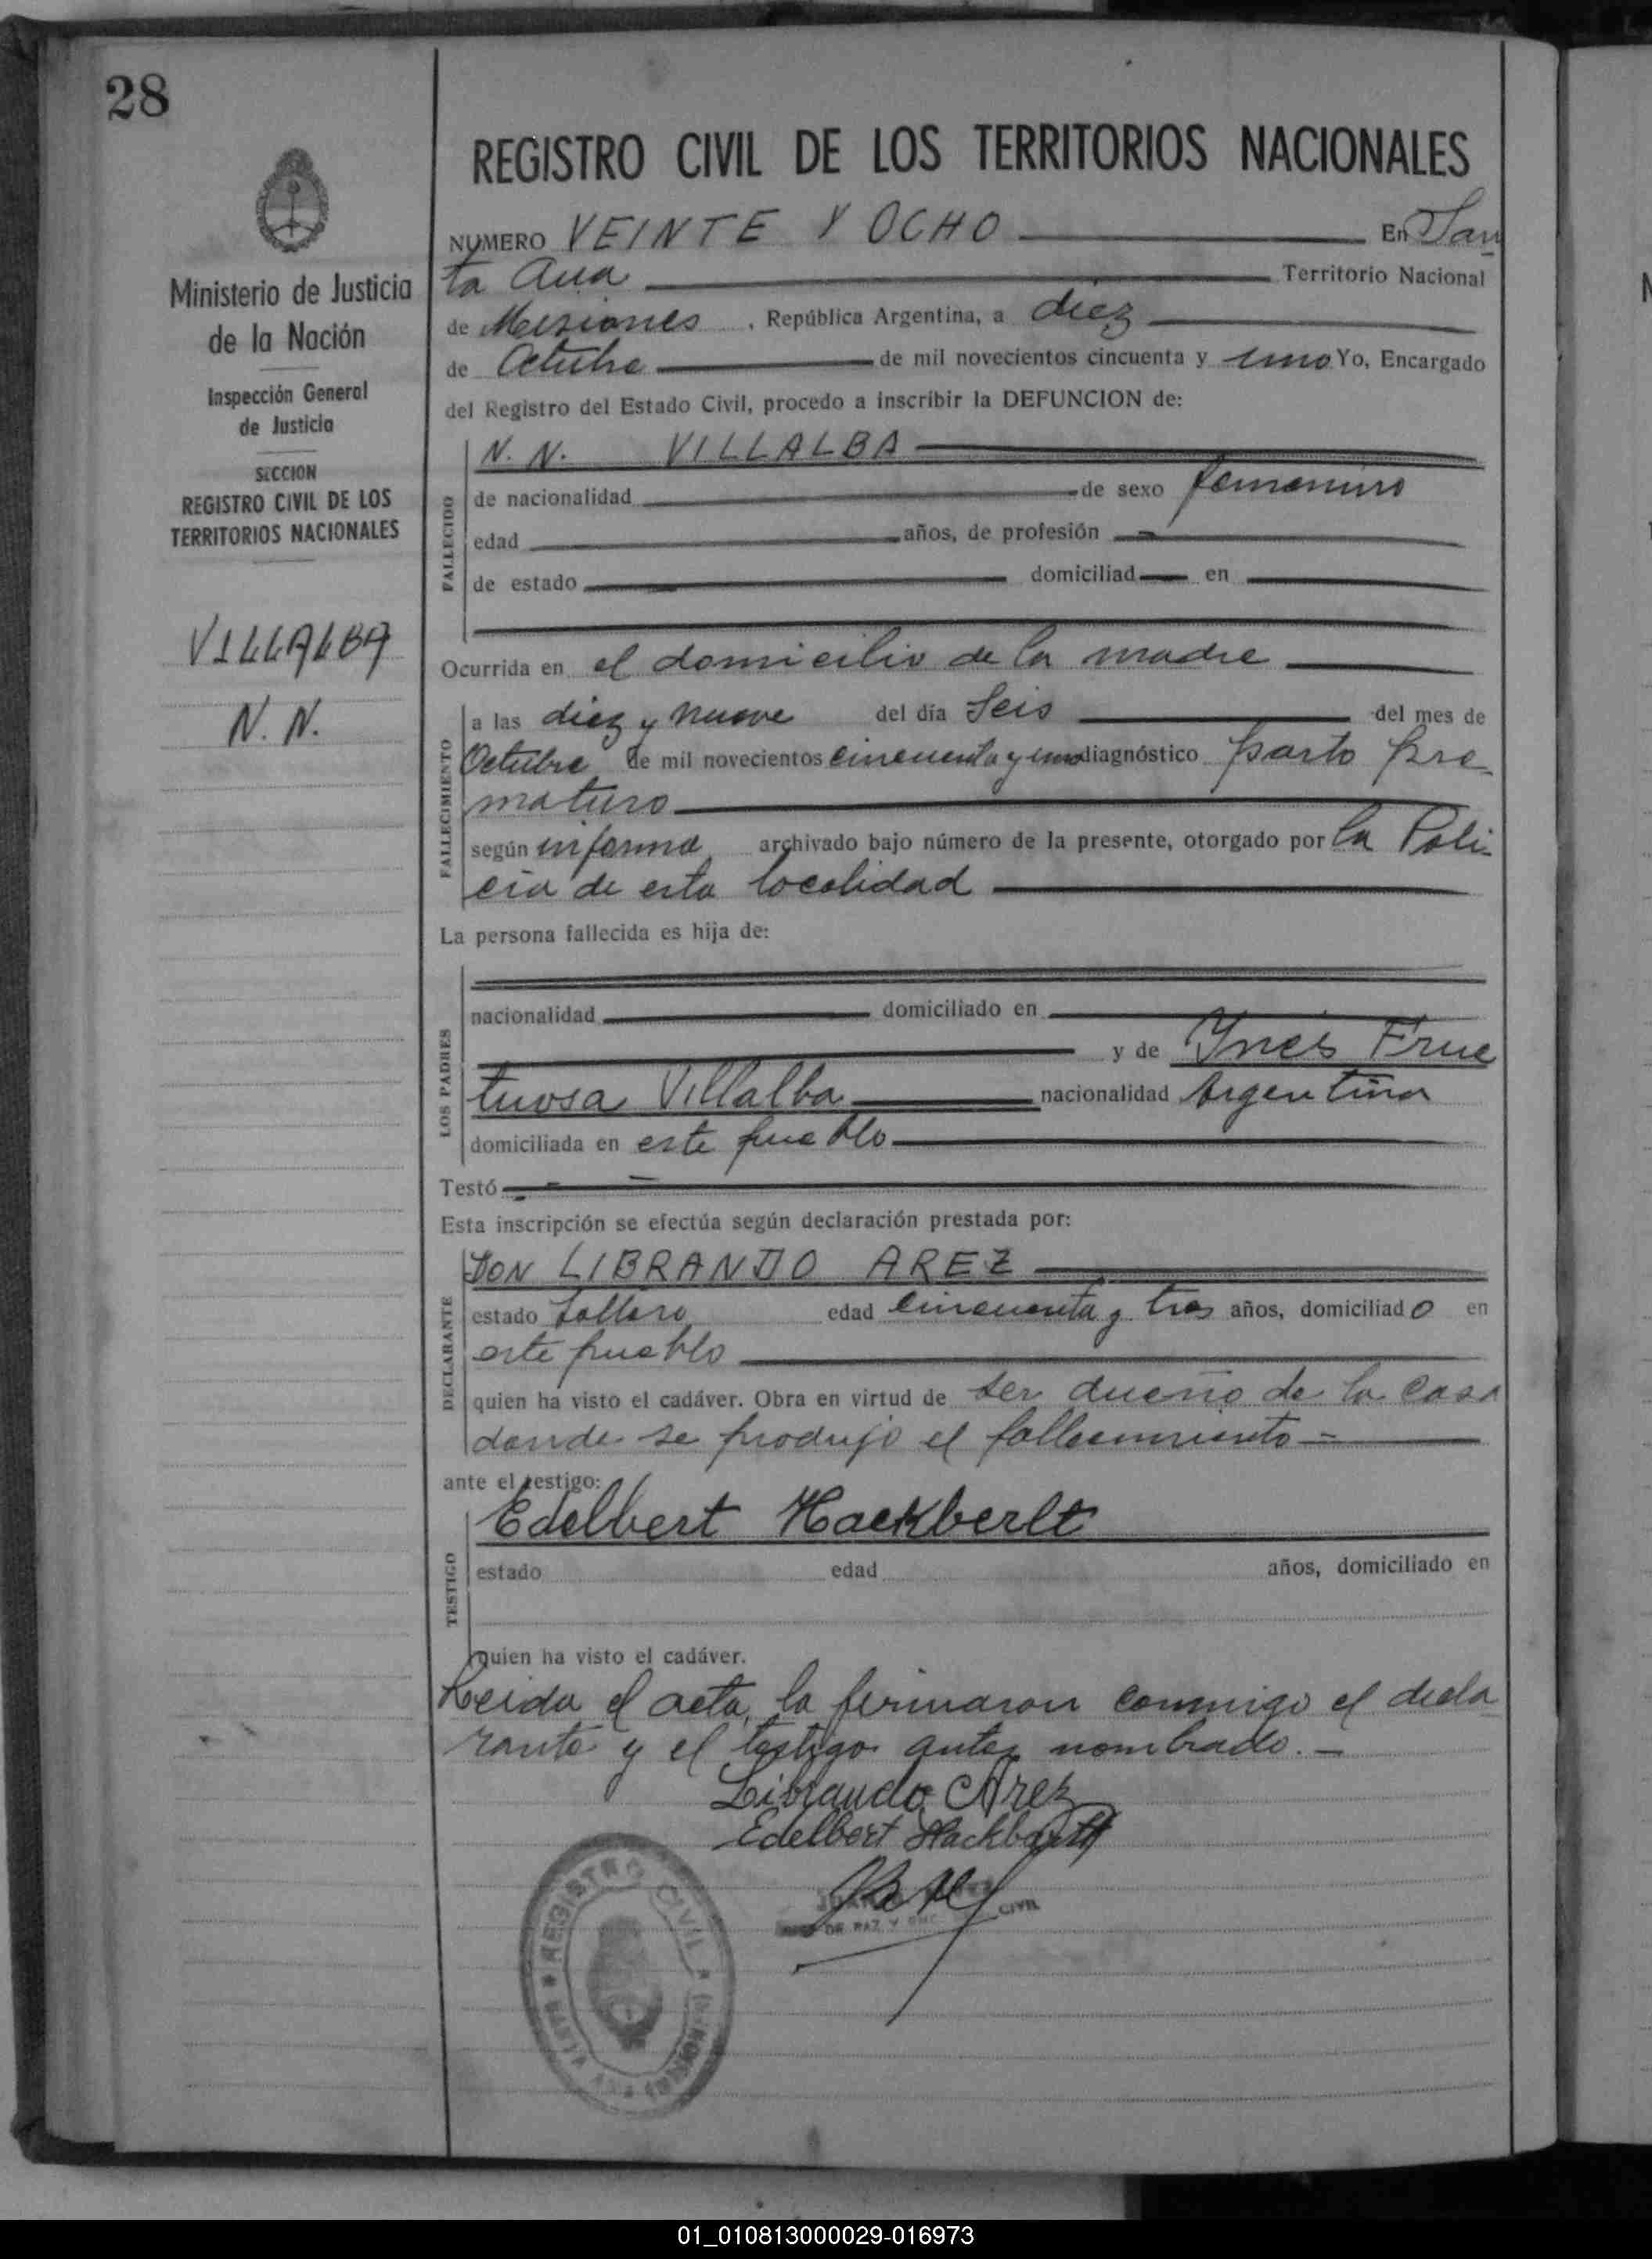 28
Ministerio de Justicia
de la Nación
Inspección General
de Justicia
SECCION
REGISTRO CIVIL DE LOS
TERRITORIOS NACIONALES
VILLALBA
N. N.
REGISTRO CIVIL DE LOS TERRITORIOS NACIONALES
NUMERO VEINTE Y OCHO En San
ta Ana Territorio Nacional
de Misiones , República Argentina, a diez
de Octubre de mil novecientos cincuenta y uno Yo, Encargado
del Registro del Estado Civil, procedo a inscribir la DEFUNCION de:
FALLECIDO
N. N. VILLALBA
de nacionalidad de sexo femenino
edad años, de profesión
de estado domiciliad en
Ocurrida en el domicilio de la madre
FALLECIMIENTO
a las diez y nueve del día Seis del mes de
Octubre de mil novecientos cincuenta y uno diagnóstico parto pre-
maturo
según informe archivado bajo número de la presente, otorgado por la Poli-
cia de esta localidad
La persona fallecida es hija de:
LOS PADRES
nacionalidad domiciliado en
y de Ynés Fruc
tuosa Villalba nacionalidad Argentina
domiciliada en este pueblo
Testó
Esta inscripción se efectúa según declaración prestada por:
DECLARANTE
DON LIBRANDO AREZ
estado soltero edad cincuenta y tres años, domiciliado en
este pueblo
quien ha visto el cadáver. Obra en virtud de ser dueño de la casa
donde se produjo el fallecimiento
ante el testigo:
TESTIGO
Edelbert Hackberlt
estado edad años, domiciliado en
quien ha visto el cadáver.
Leida el acta, la firmaron conmigo el decla
rante y el testigo antes nombrado.
Librando Arez
Edelbert Hackbartt
DE PAZ Y CIVIL
REGISTRO CIVIL * (MISIONES) * SANTA ANA *
01_010813000029-016973